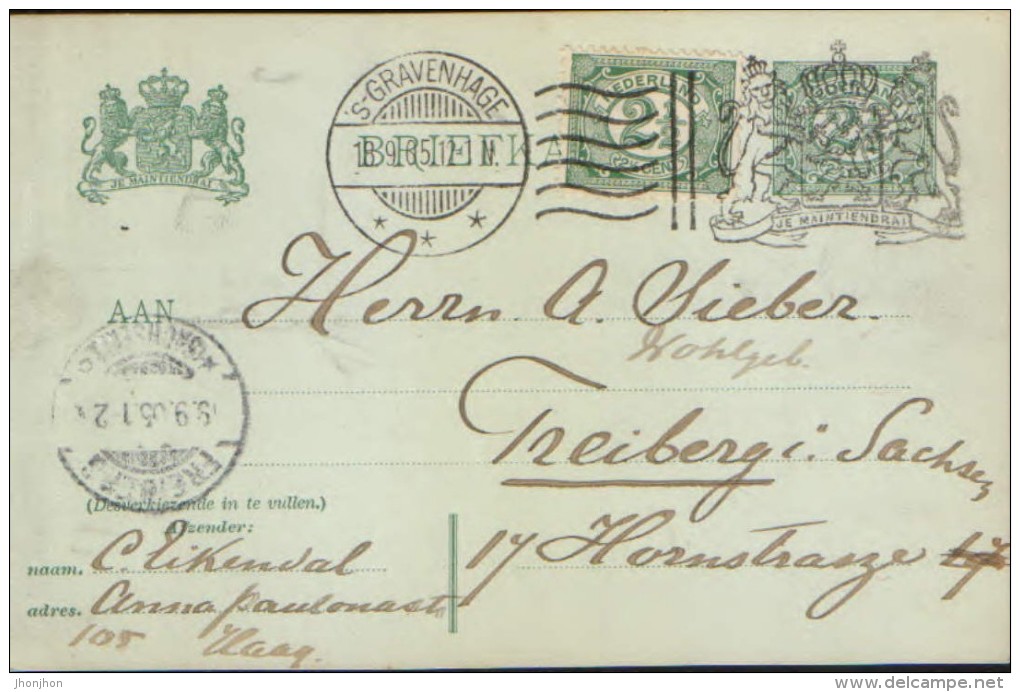 JE MAINTIENDRAI
'S-GRAVENHAGE
18.9.05.12-1 N.
BRIEFKA
NEDERLAND
2½
CENT
JE MAINTIENDRAI
AAN
Herrn A. Sieber.
Wohlgeb.
Freiberg i. Sachsen
17 Hornstrasze 17
(SACHSEN)
9.05.1-2
FREIBERG
(Desverkiezende in te vullen.)
Afzender:
naam. C. Eikendal
adres. Anna Paulonastr
105 Haag.
jhonjhon
www.delcampe.net